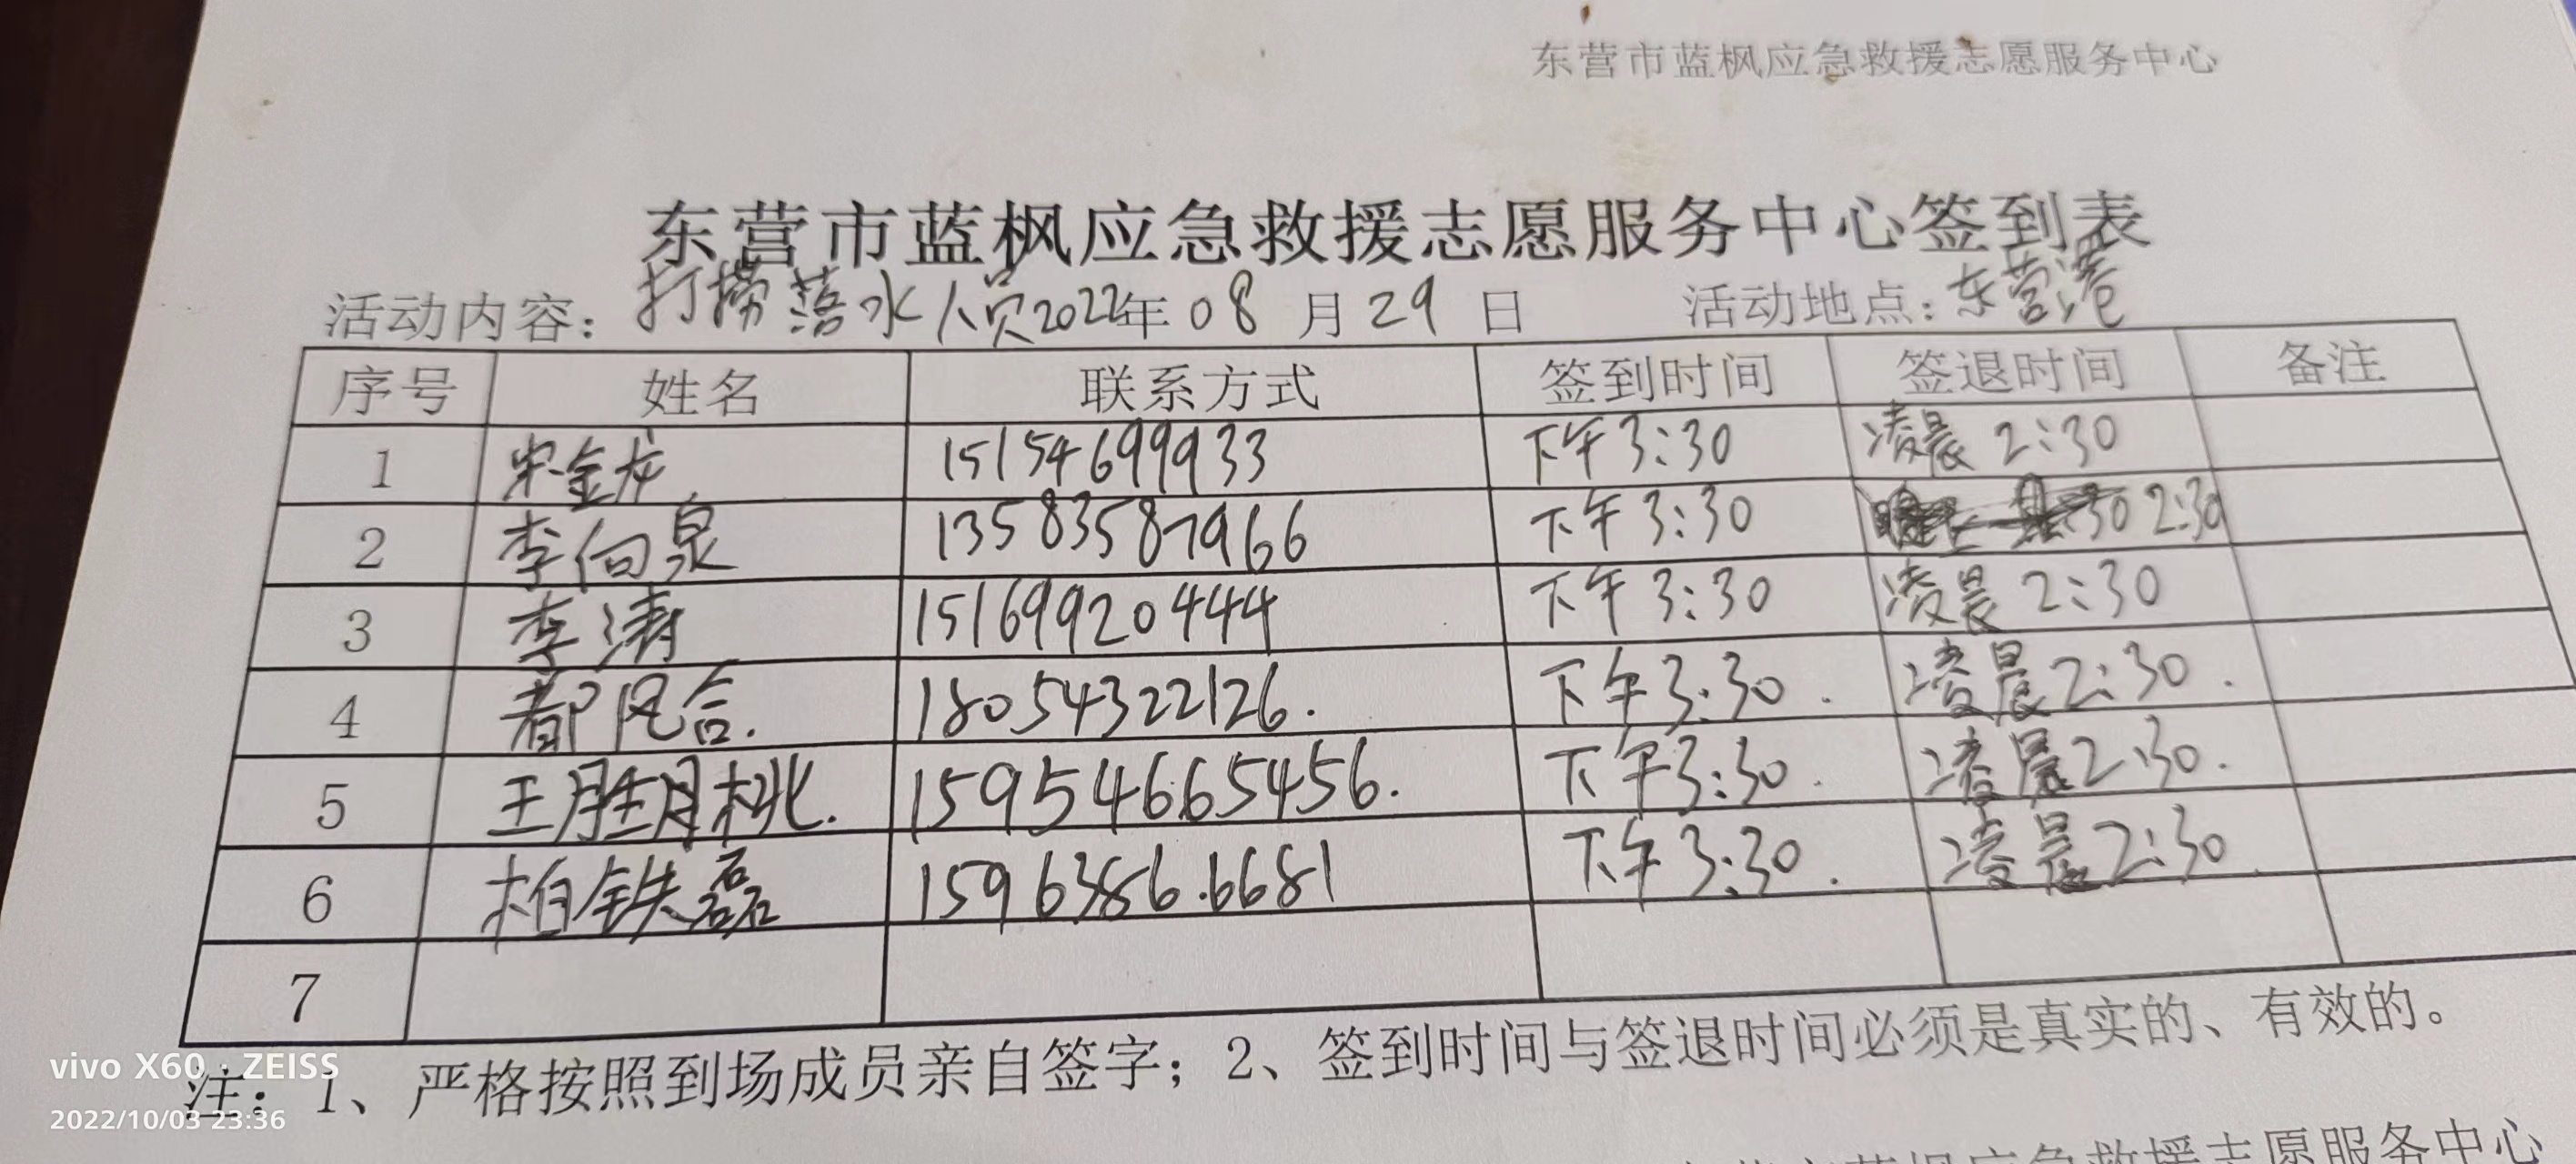 东营市蓝枫应急救援志愿服务中心
东营市蓝枫应急救援志愿服务中心签到表
活动内容：打捞落水人员2022年08月29日 活动地点：东营港
序号 姓名 联系方式 签到时间 签退时间 备注
1 宋金龙 15154699933 下午3:30 凌晨2:30
2 李向泉 13583587966 下午3:30 2:30
3 李涛 15169920444 下午3:30 凌晨2:30
4 都风合. 18054322126. 下午3:30. 凌晨2:30.
5 王胜桃. 15954665456. 下午3:30. 凌晨2:30.
6 柏铁磊 15963866681 下午3:30. 凌晨2:30
7
注：1、严格按照到场成员亲自签字；2、签到时间与签退时间必须是真实的、有效的。
vivo X60 · ZEISS
2022/10/03 23:36
东营市蓝枫应急救援志愿服务中心